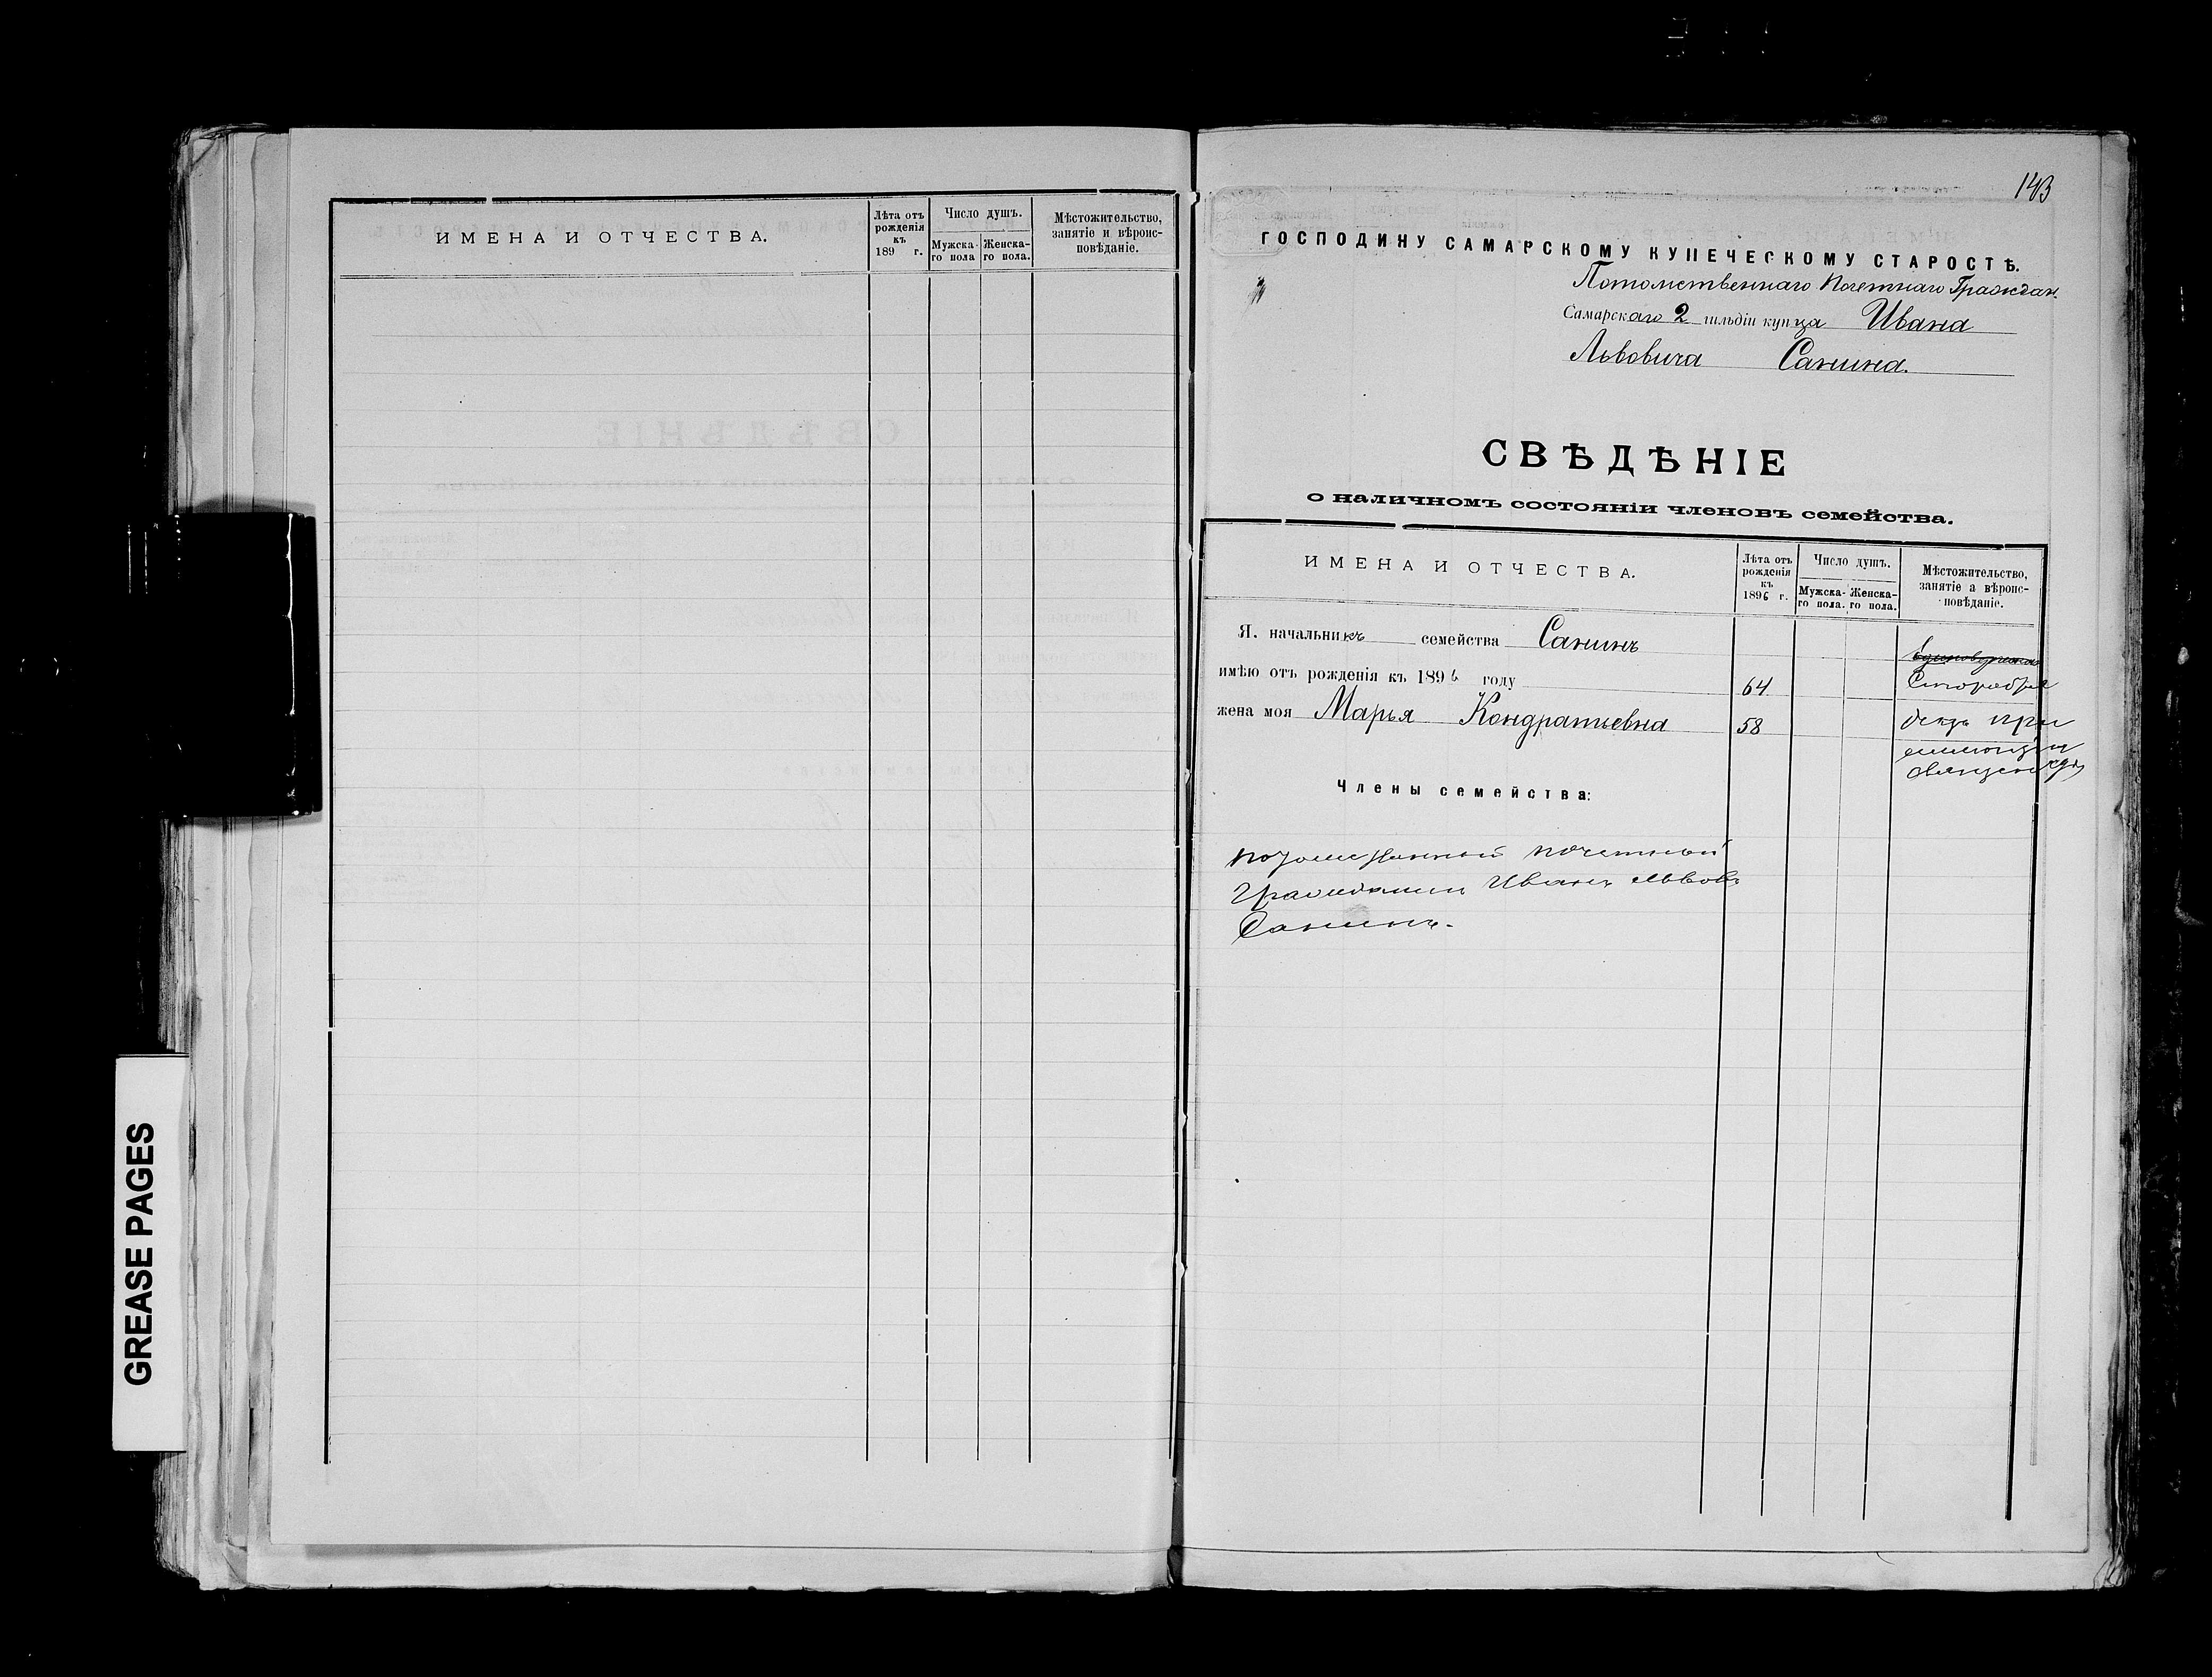 ИМЕНА И ОТЧЕСТВА.
Лѣта отъ рожденія къ 189 г.
Число душъ.
Мужска-го пола
Женска-го пола.
Мѣстожительство, занятіе и вѣроис-повѣданіе.
143
ГОСПОДИНУ САМАРСКОМУ КУПЕЧЕСКОМУ СТАРОСТѢ.
Потомственнаго Почетнаго Граждан.
Самарскаго 2 гильдіи купца Ивана
Львовича Санина.
СВѢДѢНІЕ
о наличномъ состояніи членовъ семейства.
ИМЕНА И ОТЧЕСТВА.
Лѣта отъ рожденія къ 1896 г.
Число душъ.
Мужска-го пола.
Женска-го пола.
Мѣстожительство, занятіе а вѣроис-повѣданіе.
Я. начальникъ семейства Санинъ
имѣю отъ рожденія къ 1896 году 64
Старобр
жена моя Марья Кондратьевна 58
Члены семейства:
потомственный почетный
Гражданинъ Иванъ Львовъ
Санинъ.
GREASE PAGES